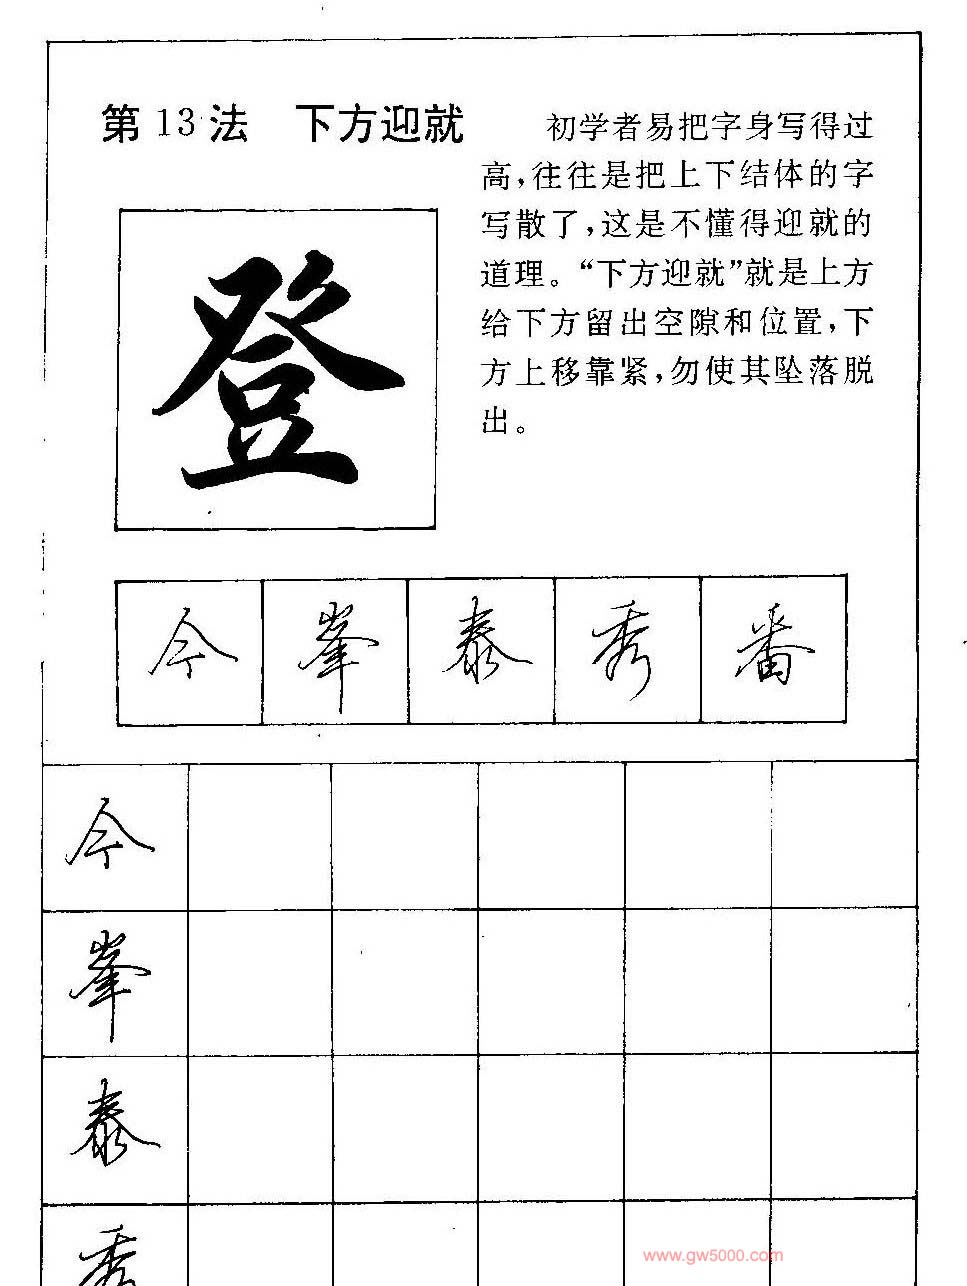 第13法　下方迎就
初学者易把字身写得过
高，往往是把上下结体的字
写散了，这是不懂得迎就的
道理。“下方迎就”就是上方
给下方留出空隙和位置，下
方上移靠紧，勿使其坠落脱
出。
登
今 峯 泰 秀 番
今
峯
泰
秀
www.gw5000.com